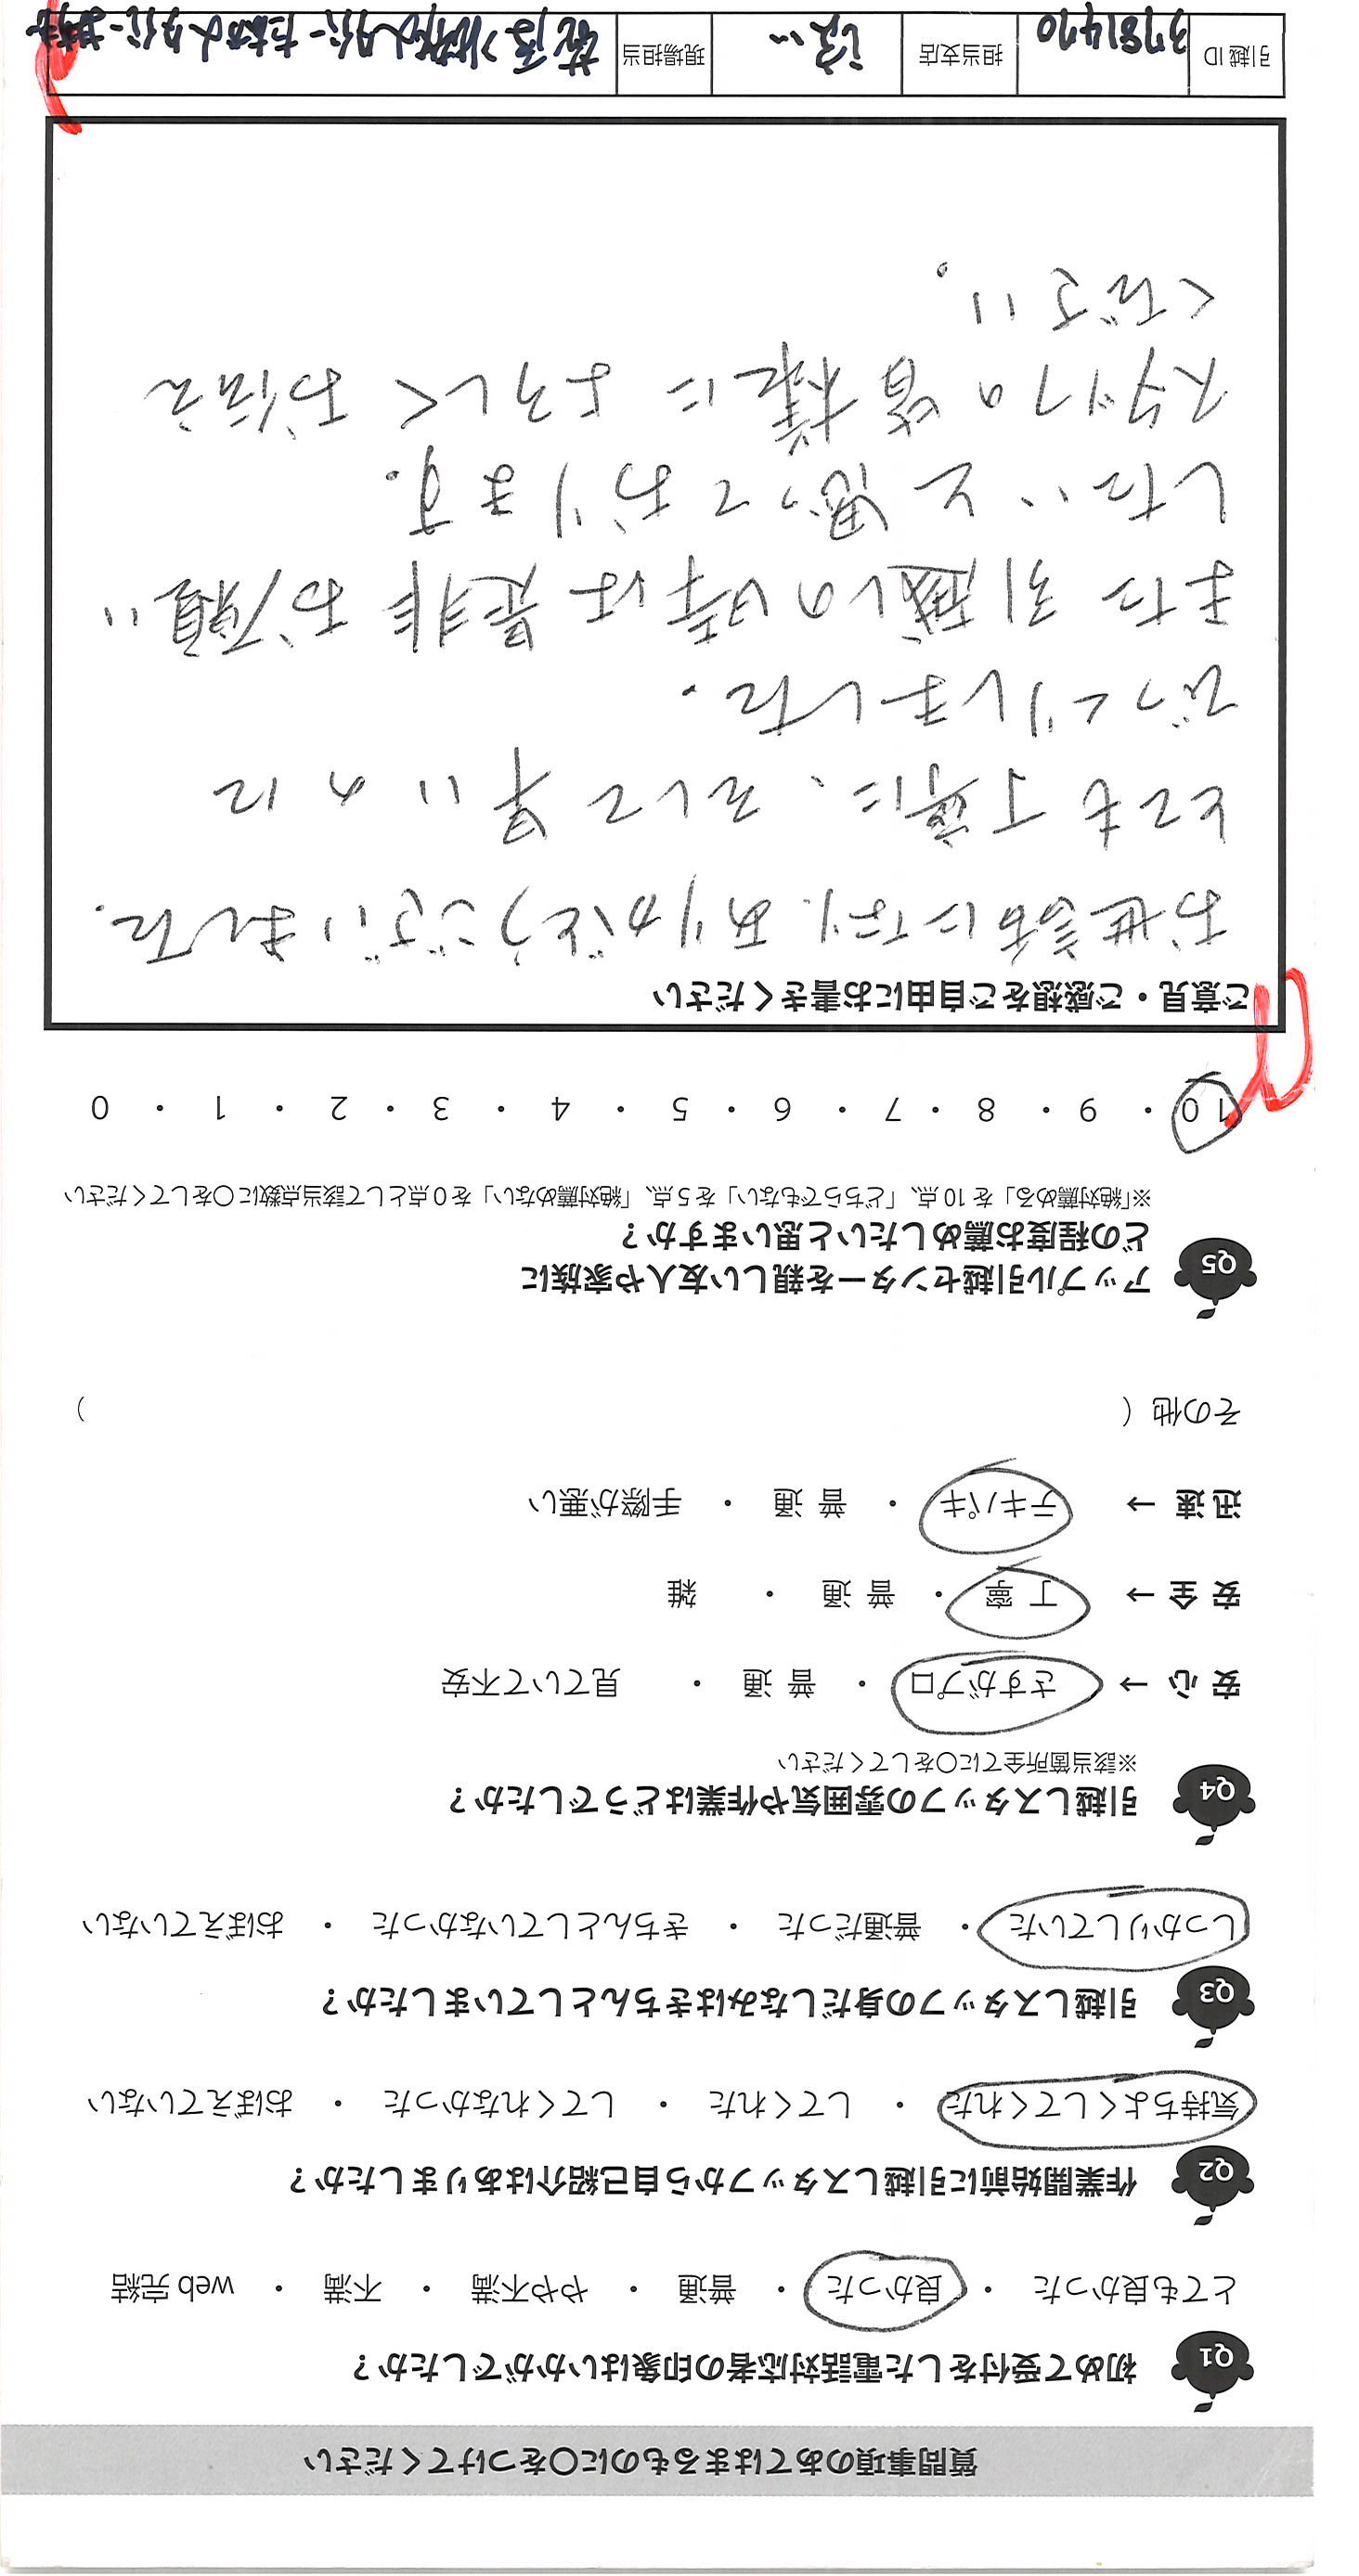 質問事項のあてはまるものに〇をつけてください
Q1 初めて受付をした電話対応者の印象はいかがでしたか？
とても良かった ・ 良かった ・ 普通 ・ やや不満 ・ 不満 ・ web 完結
Q2 作業開始前に引越しスタッフから自己紹介はありましたか？
気持ちよくしてくれた ・ してくれた ・ してくれなかった ・ おぼえていない
Q3 引越しスタッフの身だしなみはきちんとしていましたか？
しっかりしていた ・ 普通だった ・ きちんとしていなかった ・ おぼえていない
Q4 引越しスタッフの雰囲気や作業はどうでしたか？
※該当箇所全てに〇をしてください
安心 → さすがプロ ・ 普通 ・ 見ていて不安
安全 → 丁寧 ・ 普通 ・ 雑
迅速 → テキパキ ・ 普通 ・ 手際が悪い
その他（ ）
Q5 アップル引越センターを親しい友人や家族に
どの程度お薦めしたいと思いますか？
※「絶対薦める」を 10 点、「どちらでもない」を 5 点、「絶対薦めない」を 0 点として該当点数に〇をしてください
10 ・ 9 ・ 8 ・ 7 ・ 6 ・ 5 ・ 4 ・ 3 ・ 2 ・ 1 ・ 0
ご意見・ご感想をご自由にお書きください
お世話になり、ありがとうございました。
とても丁寧に、そして早いのに
びっくりしました。
また引越しの時は是非お願い
したいと思っております。
スタッフの皆様によろしくお伝え
ください。
引越 ID 3781470 担当支店 現場担当